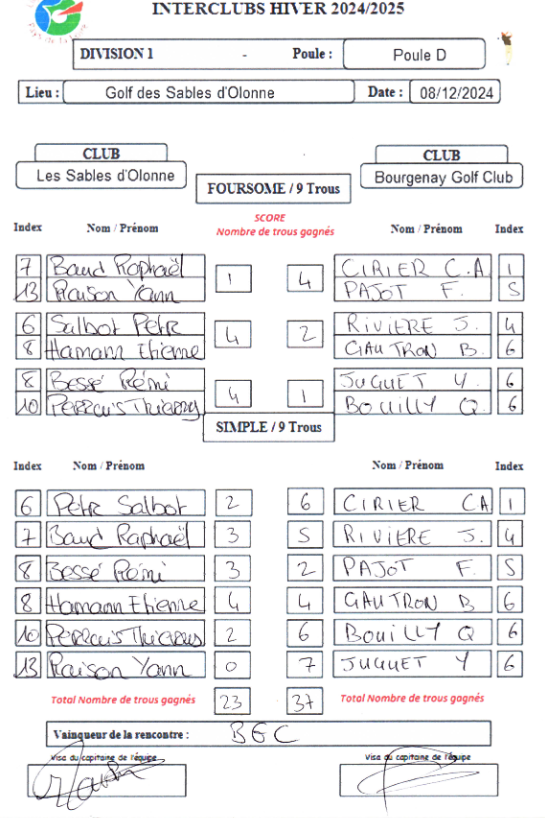 INTERCLUBS HIVER 2024/2025
DIVISION 1 - Poule : Poule D
Lieu : Golf des Sables d'Olonne Date : 08/12/2024
CLUB CLUB
Les Sables d'Olonne Bourgenay Golf Club
FOURSOME / 9 Trous
SCORE
Index Nom / Prénom Nombre de trous gagnés Nom / Prénom Index
7 Baud Raphaël 1 4 CIRIER C.A 1
13 Raison Yann PAJOT F. 5
6 Salbot Petr 4 2 RIVIERE J. 4
8 Hamann Etienne GAUTRON B. 6
8 Bessé Rémi 4 1 JUGUET Y. 6
10 Perrais Thierry BOUILLY Q. 6
SIMPLE / 9 Trous
Index Nom / Prénom Nom / Prénom Index
6 Petr Salbot 2 6 CIRIER CA 1
7 Baud Raphaël 3 5 RIVIERE J. 4
8 Bessé Rémi 3 2 PAJOT F. 5
8 Hamann Etienne 4 4 GAUTRON B 6
10 Perrais Thierry 2 6 BOUILLY Q 6
13 Raison Yann 0 7 JUGUET Y 6
Total Nombre de trous gagnés 23 37 Total Nombre de trous gagnés
Vainqueur de la rencontre : BGC
Visa du capitaine de l'équipe Visa du capitaine de l'équipe